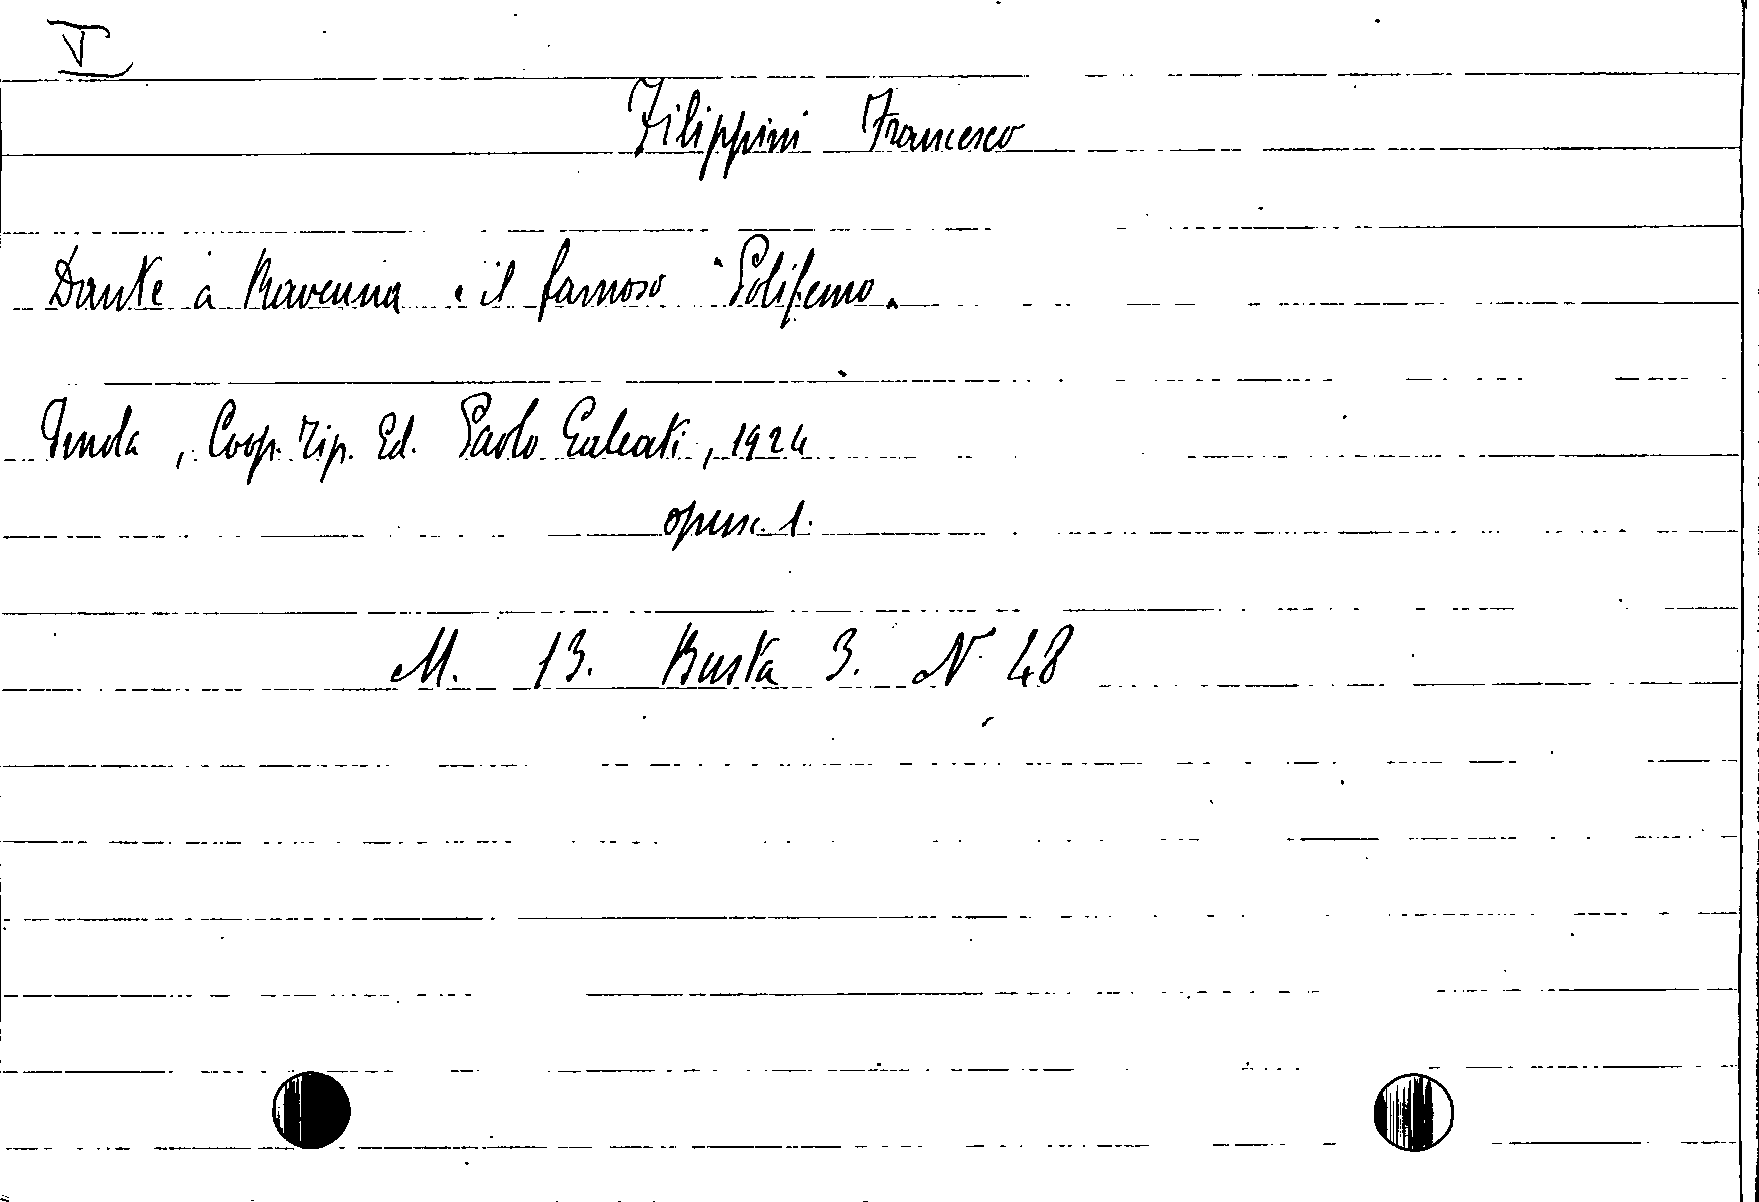 V
Filippini Francesco
Dante a Ravenna e il famoso "Polifemo.
Imola, Coop. Tip. Ed. Paolo Galeati, 1924
opusc. 1.
M. 13. Busta 3. N. 48